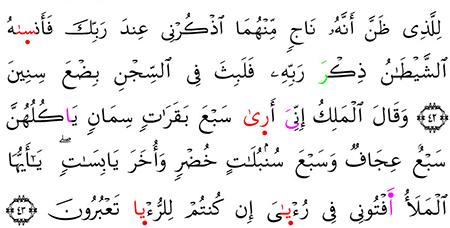 لِلَّذِى ظَنَّ أَنَّهُۥ نَاجٍ مِّنْهُمَا ٱذْكُرْنِى عِندَ رَبِّكَ فَأَنسىٰهُ
ٱلشَّيْطَٰنُ ذِكْرَ رَبِّهِۦ فَلَبِثَ فِى ٱلسِّجْنِ بِضْعَ سِنِينَ
﴿٤٢﴾ وَقَالَ ٱلْمَلِكُ إِنِّىَ أَرىٰ سَبْعَ بَقَرَٰتٍ سِمَانٍ يَاكُلُهُنَّ
سَبْعٌ عِجَافٌ وَسَبْعَ سُنۢبُلَٰتٍ خُضْرٍ وَأُخَرَ يَابِسَٰتٍ ۖ يَٰٓأَيُّهَا
ٱلْمَلَأُ اَ۬فْتُونِى فِى رُءْيَٰىَ إِن كُنتُمْ لِلرُّءْيا تَعْبُرُونَ ﴿٤٣﴾